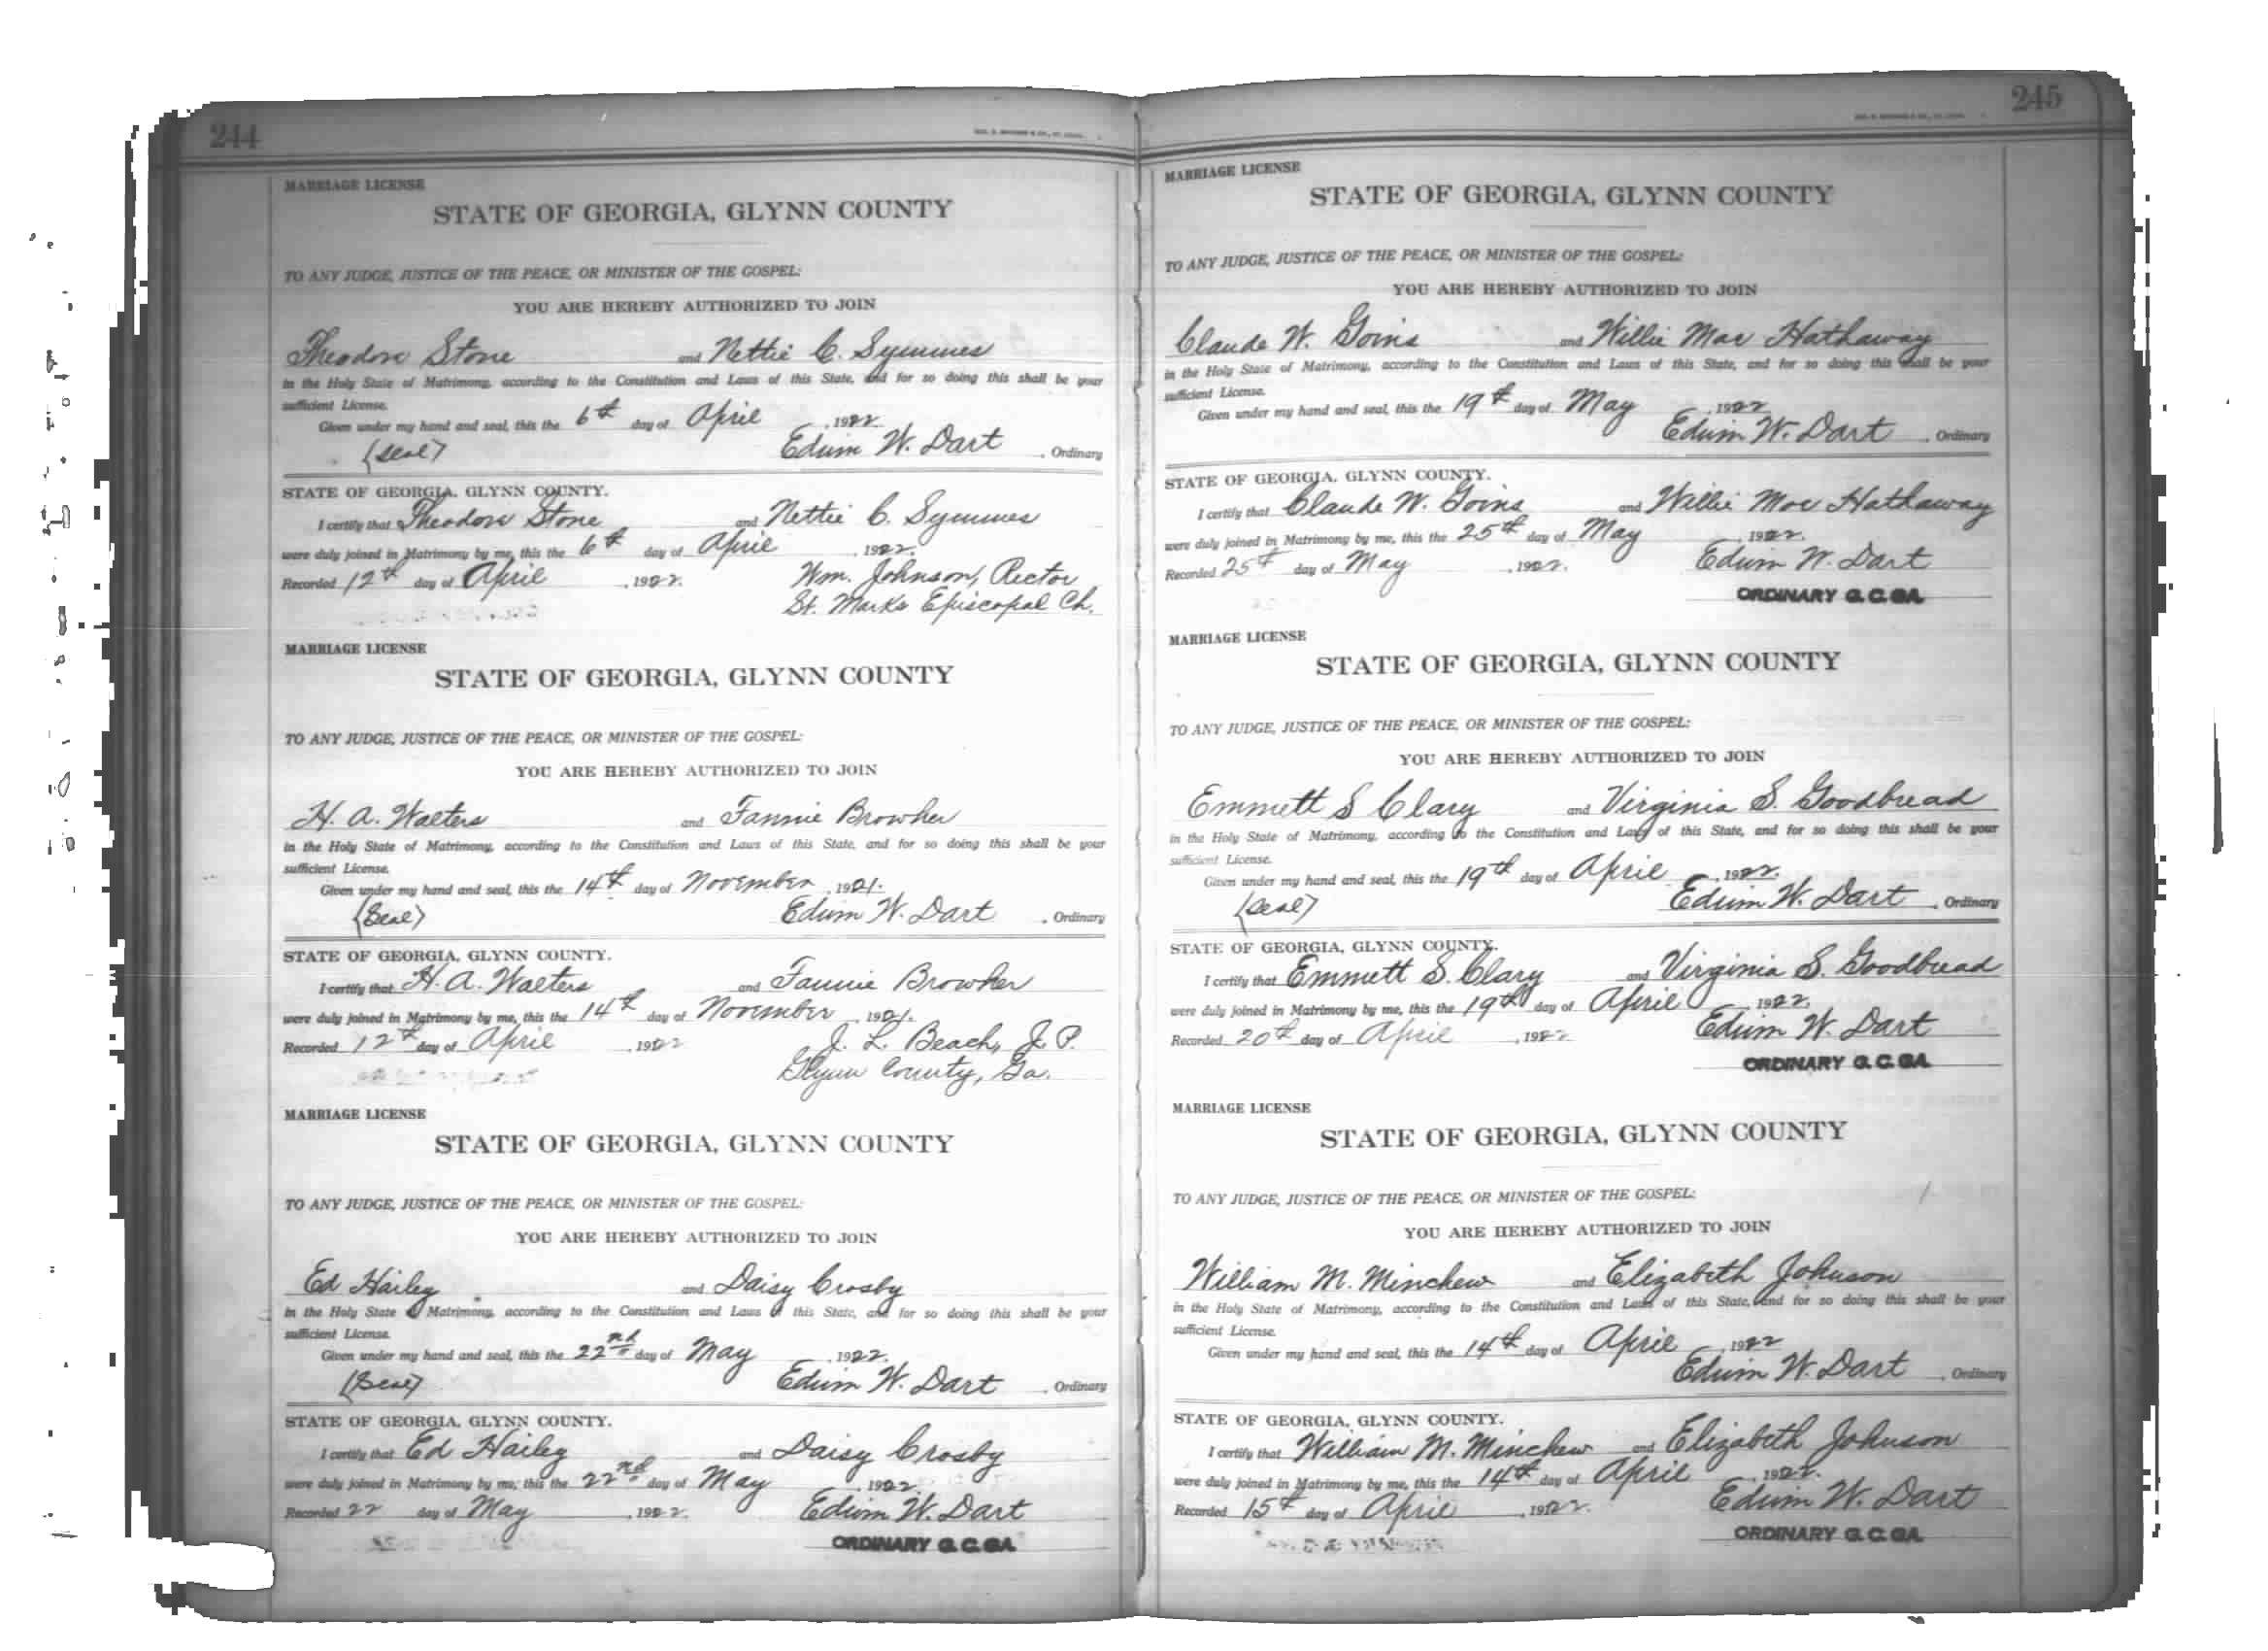 244
MARRIAGE LICENSE
STATE OF GEORGIA, GLYNN COUNTY
TO ANY JUDGE, JUSTICE OF THE PEACE, OR MINISTER OF THE GOSPEL:
YOU ARE HEREBY AUTHORIZED TO JOIN
Theodore Stone and Nettie C. Symmes
in the Holy State of Matrimony, according to the Constitution and Laws of this State, and for so doing this shall be your
sufficient License.
Given under my hand and seal, this the 6th day of April, 1922.
(Seal) Edwin W. Dart, Ordinary
STATE OF GEORGIA, GLYNN COUNTY.
I certify that Theodore Stone and Nettie C. Symmes
were duly joined in Matrimony by me, this the 6th day of April, 1922.
Recorded 12th day of April, 1922. Wm. Johnson, Rector
St. Marks Episcopal Ch.
MARRIAGE LICENSE
STATE OF GEORGIA, GLYNN COUNTY
TO ANY JUDGE, JUSTICE OF THE PEACE, OR MINISTER OF THE GOSPEL:
YOU ARE HEREBY AUTHORIZED TO JOIN
H. A. Walters and Fannie Browher
in the Holy State of Matrimony, according to the Constitution and Laws of this State, and for so doing this shall be your
sufficient License.
Given under my hand and seal, this the 14th day of November, 1921.
(Seal) Edwin W. Dart, Ordinary
STATE OF GEORGIA, GLYNN COUNTY.
I certify that H. A. Walters and Fannie Browher
were duly joined in Matrimony by me, this the 14th day of November, 1921.
Recorded 12th day of April, 1922 J. L. Beach, J. P.
Glynn County, Ga.
MARRIAGE LICENSE
STATE OF GEORGIA, GLYNN COUNTY
TO ANY JUDGE, JUSTICE OF THE PEACE, OR MINISTER OF THE GOSPEL:
YOU ARE HEREBY AUTHORIZED TO JOIN
Ed Hailey and Daisy Crosby
in the Holy State of Matrimony, according to the Constitution and Laws of this State, and for so doing this shall be your
sufficient License.
Given under my hand and seal, this the 22nd day of May, 1922.
(Seal) Edwin W. Dart, Ordinary
STATE OF GEORGIA, GLYNN COUNTY.
I certify that Ed Hailey and Daisy Crosby
were duly joined in Matrimony by me, this the 22nd day of May, 1922.
Recorded 22 day of May, 1922. Edwin W. Dart
ORDINARY G. C. GA.
245
MARRIAGE LICENSE
STATE OF GEORGIA, GLYNN COUNTY
TO ANY JUDGE, JUSTICE OF THE PEACE, OR MINISTER OF THE GOSPEL:
YOU ARE HEREBY AUTHORIZED TO JOIN
Claude W. Goins and Willie Mae Hathaway
in the Holy State of Matrimony, according to the Constitution and Laws of this State, and for so doing this shall be your
sufficient License.
Given under my hand and seal, this the 19th day of May, 1922
Edwin W. Dart, Ordinary
STATE OF GEORGIA, GLYNN COUNTY.
I certify that Claude W. Goins and Willie Mae Hathaway
were duly joined in Matrimony by me, this the 25th day of May, 1922.
Recorded 25th day of May, 1922. Edwin W. Dart
ORDINARY G. C. GA.
MARRIAGE LICENSE
STATE OF GEORGIA, GLYNN COUNTY
TO ANY JUDGE, JUSTICE OF THE PEACE, OR MINISTER OF THE GOSPEL:
YOU ARE HEREBY AUTHORIZED TO JOIN
Emmett S Clary and Virginia S. Goodbread
in the Holy State of Matrimony, according to the Constitution and Laws of this State, and for so doing this shall be your
sufficient License.
Given under my hand and seal, this the 19th day of April, 1922.
(Seal) Edwin W. Dart, Ordinary
STATE OF GEORGIA, GLYNN COUNTY.
I certify that Emmett S. Clary and Virginia S. Goodbread
were duly joined in Matrimony by me, this the 19th day of April, 1922.
Recorded 20th day of April, 1922 Edwin W. Dart
ORDINARY G. C. GA.
MARRIAGE LICENSE
STATE OF GEORGIA, GLYNN COUNTY
TO ANY JUDGE, JUSTICE OF THE PEACE, OR MINISTER OF THE GOSPEL:
YOU ARE HEREBY AUTHORIZED TO JOIN
William M. Minchew and Elizabeth Johnson
in the Holy State of Matrimony, according to the Constitution and Laws of this State, and for so doing this shall be your
sufficient License.
Given under my hand and seal, this the 14th day of April, 1922
Edwin W. Dart, Ordinary
STATE OF GEORGIA, GLYNN COUNTY.
I certify that William M. Minchew and Elizabeth Johnson
were duly joined in Matrimony by me, this the 14th day of April, 1922.
Recorded 15th day of April, 1922. Edwin W. Dart
ORDINARY G. C. GA.